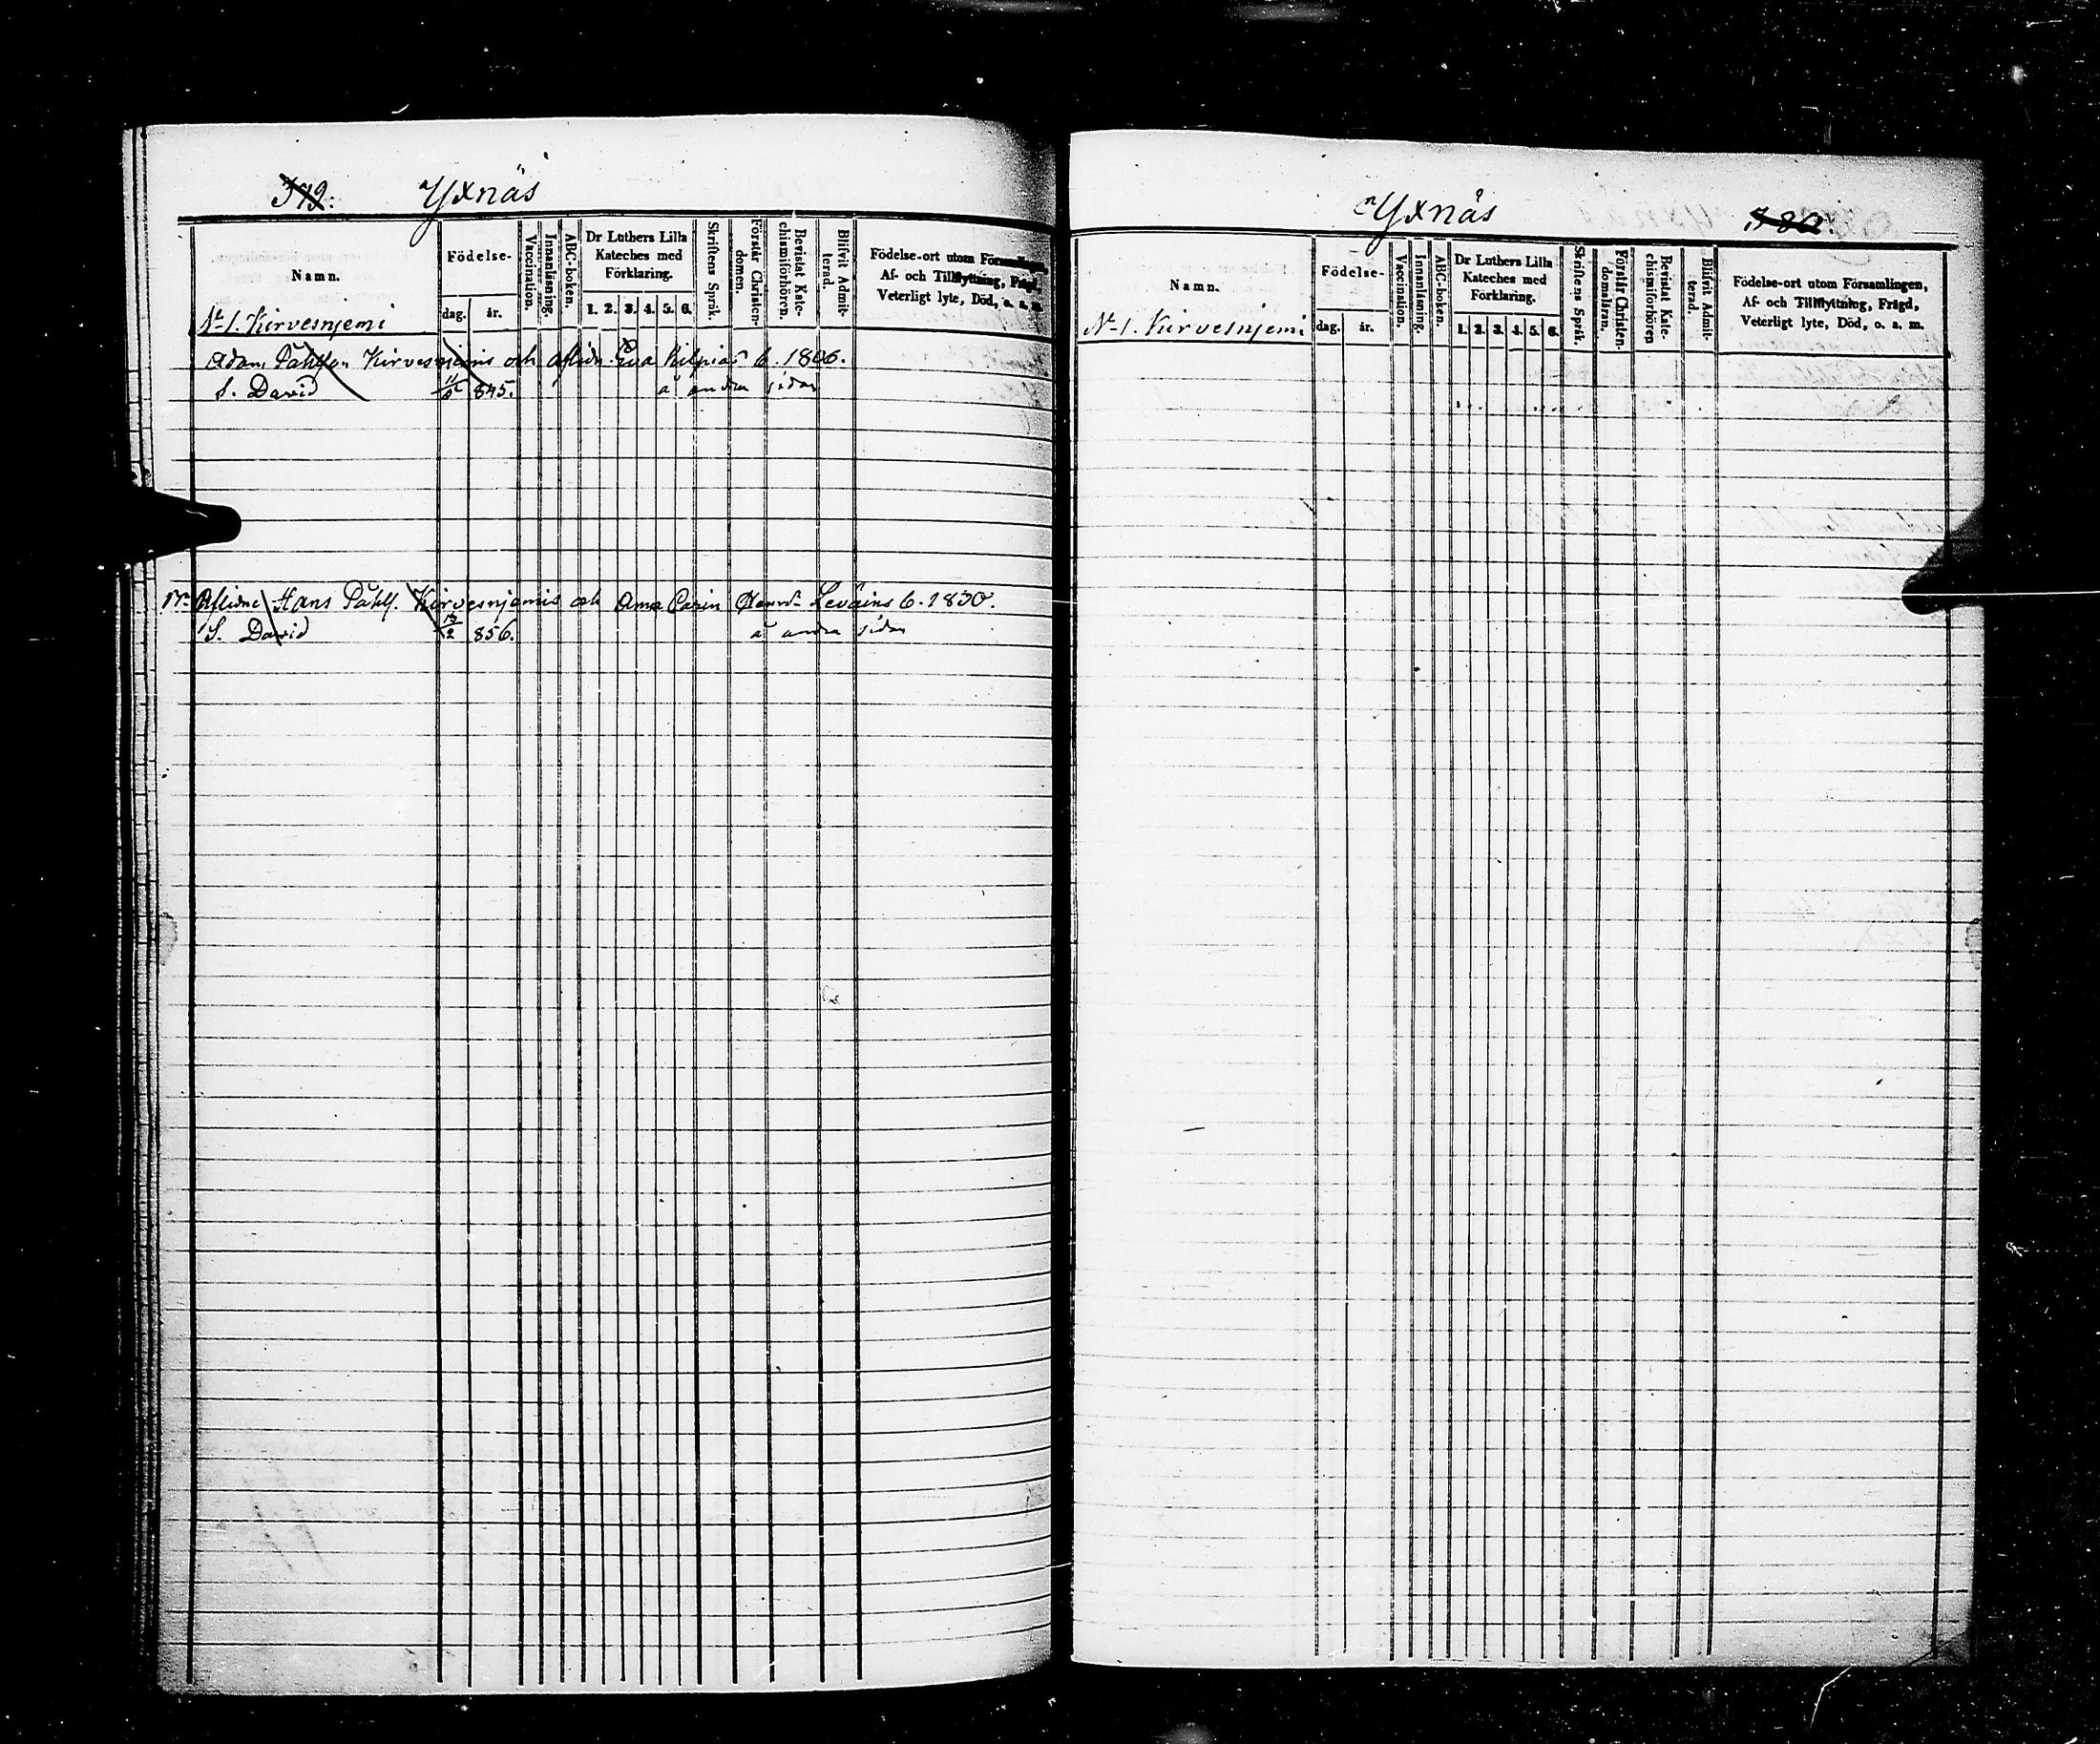 379. Yxnäs
Namn.
Födelse-
dag.
år.
Vaccination.
Innanläsning.
ABC-boken.
Dr Luthers Lilla
Kateches med
Förklaring.
1. 2. 3. 4. 5. 6.
Skriftens Språk.
Förstår Christen-
domen.
Bevistat Kate-
chismiförhören.
Blifvit Admit-
terad.
Födelse-ort utom Församlingen,
Af- och Tillflyttning, Frägd,
Veterligt lyte, Död, o. s. m.
No 1. Kirvesnjemi
Adam Påhlson Kirvesnjemis och aflidn. Eva Kilpias b. 1806.
S. David 11/5 845. å andra sidan
Aflidne Hans Påhls. Kirvesnjemis och Anna Carin Henrd. Leväins b. 1830.
S. David 13/2 856. å andra sidan
Yxnäs 380.
Namn.
Födelse-
dag.
år.
Vaccination.
Innanläsning.
ABC-boken.
Dr Luthers Lilla
Kateches med
Förklaring.
1. 2. 3. 4. 5. 6.
Skriftens Språk.
Förstår Christen-
domsläran.
Bevistat Kate-
chismiförhören
Blifvit Admit-
terad.
Födelse-ort utom Församlingen,
Af- och Tillflyttning, Frägd,
Veterligt lyte, Död, o. s. m.
No 1. Kirvesnjemi